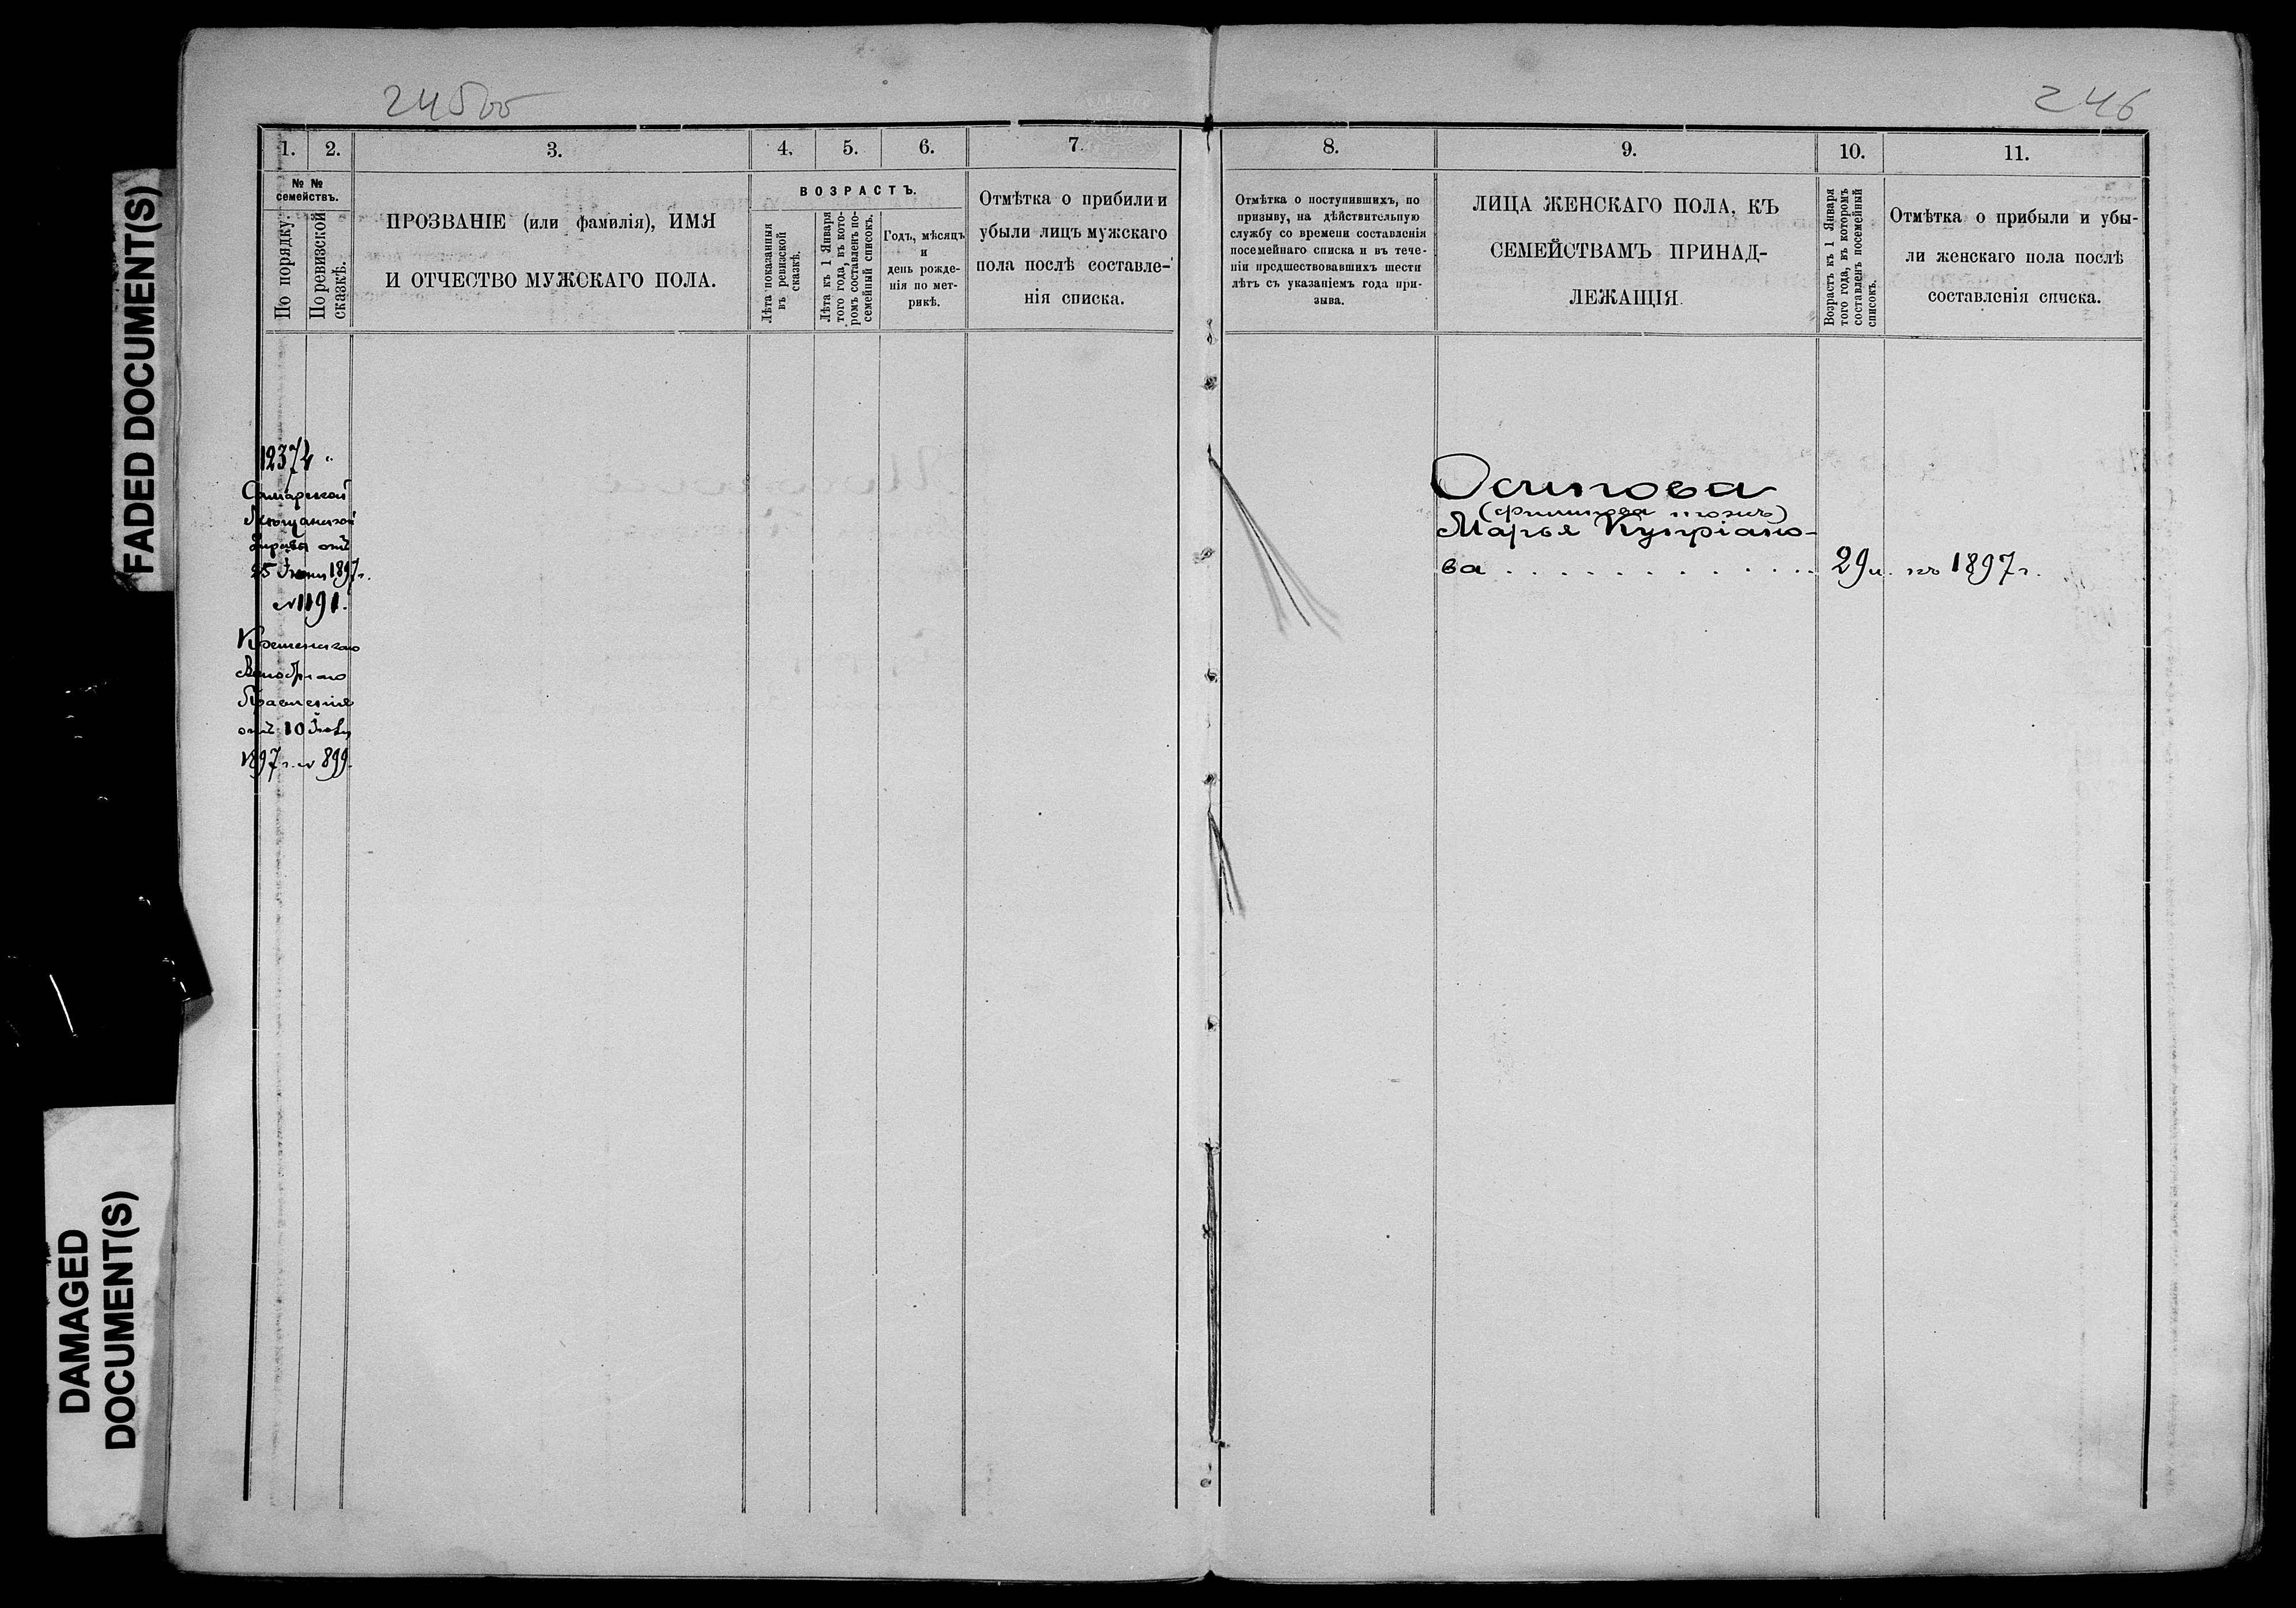 245об
246
FADED DOCUMENT(S)
DAMAGED
DOCUMENT(S)
1.
2.
3.
4.
5.
6.
7.
№ №
семействъ.
По порядку.
По ревизской
сказкѣ.
ПРОЗВАНІЕ (или фамилія), ИМЯ
И ОТЧЕСТВО МУЖСКАГО ПОЛА.
ВОЗРАСТЪ.
Лѣта показанныя
въ ревизской
сказкѣ.
Лѣта къ 1 Января
того года, въ кото-
ромъ составленъ по-
семейный списокъ.
Годъ, мѣсяцъ
и
день рожде-
нія по мет-
рикѣ.
Отмѣтка о прибыли и
убыли лицъ мужскаго
пола послѣ составле-
нія списка.
8.
9.
10.
11.
Отмѣтка о поступившихъ, по
призыву, на дѣйствительную
службу со времени составленія
посемейнаго списка и въ тече-
ніи предшествовавшихъ шести
лѣтъ съ указаніемъ года при-
зыва.
ЛИЦА ЖЕНСКАГО ПОЛА, КЪ
СЕМЕЙСТВАМЪ ПРИНАД-
ЛЕЖАЩІЯ.
Возрастъ къ 1 Января
того года, въ которомъ
составленъ посемейный
списокъ.
Отмѣтка о прибыли и убы-
ли женскаго пола послѣ
составленія списка.
12374 "
Самарской
Мѣщанской
Управы отъ
25 Іюня 1897 г.
№ 1191.
Волостнаго
Правленія
отъ 10
1897 г. № 899.
Осипова
Марья Купріано-
ва
29 л. къ 1897 г.